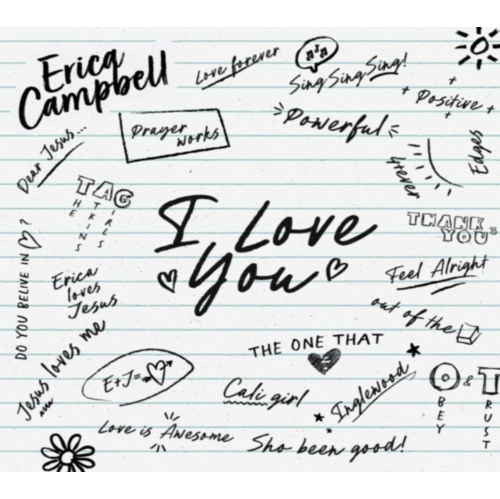 Erica
Campbell
Love forever
Sing Sing Sing!
Positive
Powerful
Prayer
works
Dear Jesus...
4+ever
Edges
TAG
THE
ATKINS
GIRLS
I Love
You
THANK
YOU'S
DO YOU BELIVE IN ?
Erica
loves
Jesus
Feel Alright
out of the
THE ONE THAT
Jesus loves me
E+J=
Cali girl
Inglewood
O & T
OBEY
TRUST
Love is Awesome
Sho been good!